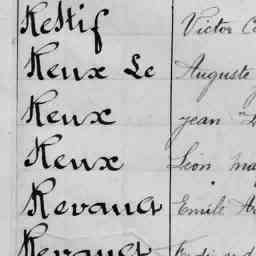 Restif Victor
Reux Le Auguste
Reux Jean
Reux Léon
Revault Emile
Revault